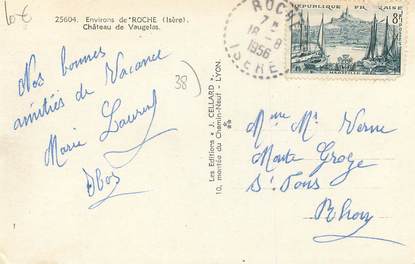 10€
25604. Environs de ROCHE (Isère).
Château de Vaugelas.
Nos bonnes
amitiés de Vacance
Marie Laurent
38)
Les Editions "J. CELLARD"
10, montée du Chemin-Neuf - LYON.
ROCHE
7 H
18-8
1956
ISERE
REPUBLIQUE FRANÇAISE
8F
MARSEILLE
Mme Mr Verne
Monte
St Fons
Rhône